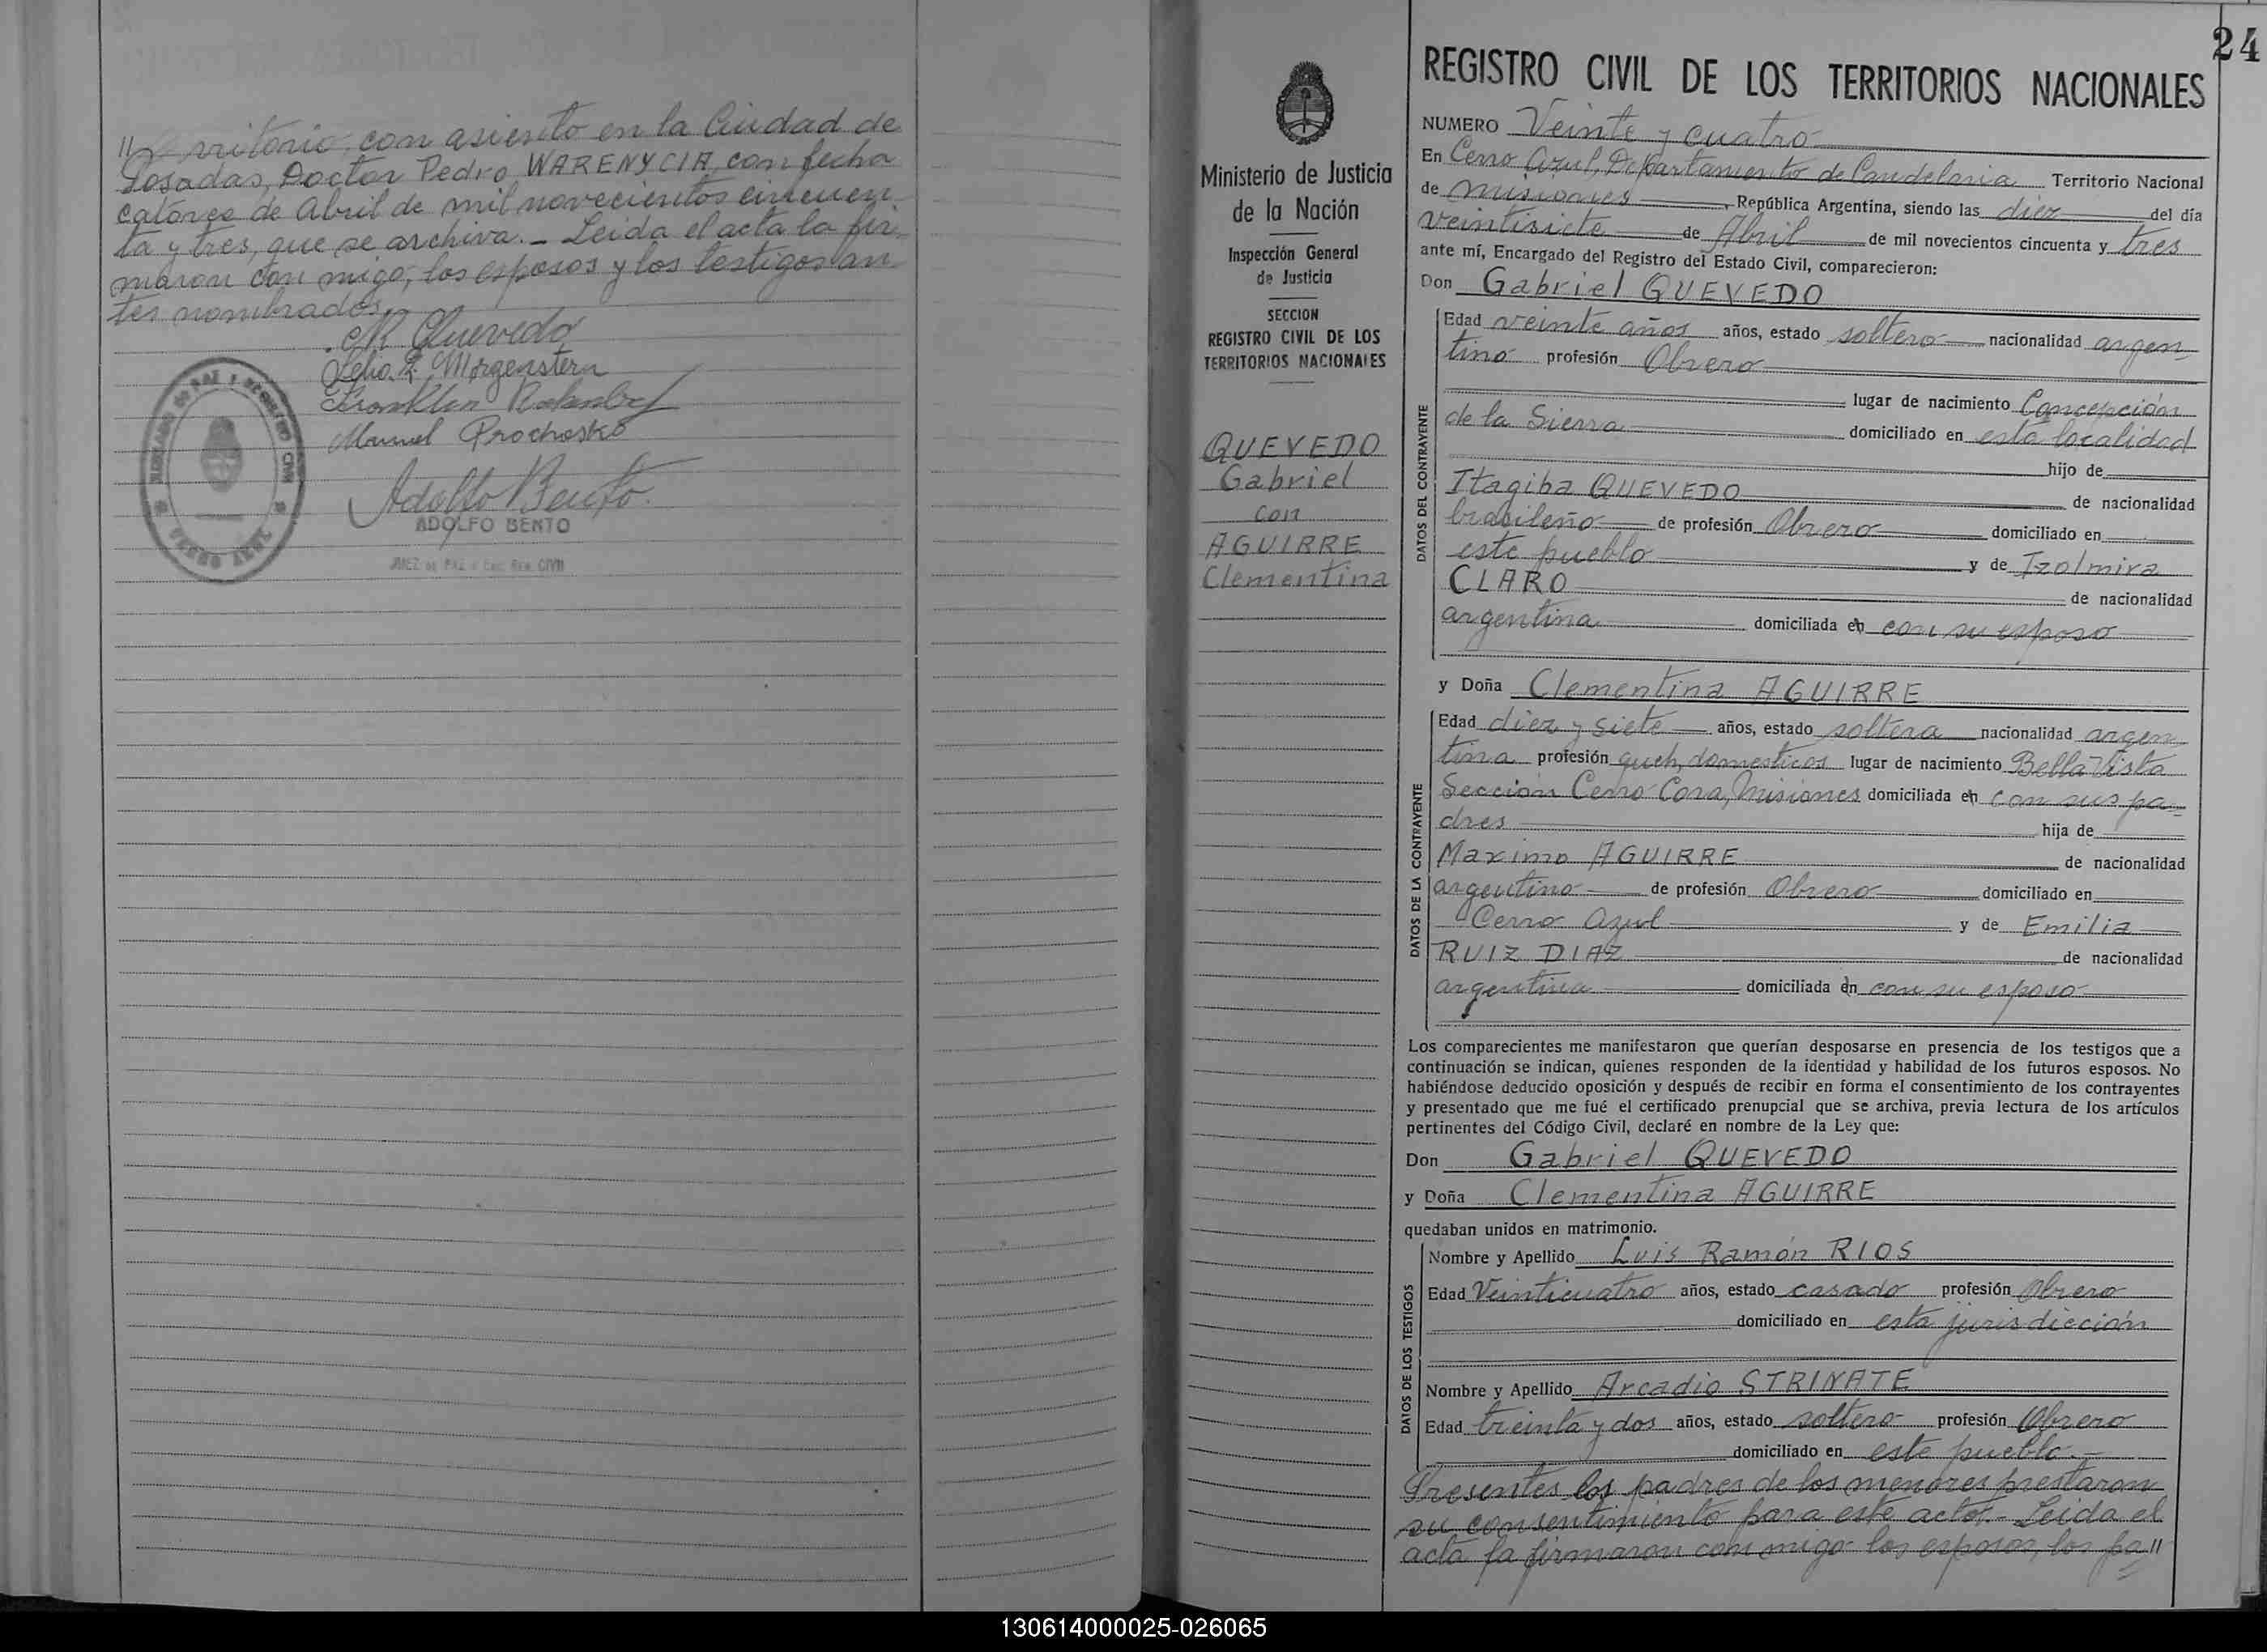 "rritorio, con asiento en la Ciudad de
Posadas, Doctor Pedro WARENYCIA, con fecha
catorce de Abril de mil novecientos cincuen
ta y tres, que se archiva. - Leida el acta la fir
maron con migo, los esposos y los testigos an
tes nombrados
M Quevedo
Morgenstern
Franklin
Manuel Prochosko
Adolfo Bento
ADOLFO BENTO
JUEZ DE PAZ y Enc. Reg. CIVIL
JUZGADO DE PAZ Y REGISTRO CIVIL
CERRO AZUL
24
REGISTRO CIVIL DE LOS TERRITORIOS NACIONALES
Ministerio de Justicia
de la Nación
Inspección General
de Justicia
SECCION
REGISTRO CIVIL DE LOS
TERRITORIOS NACIONALES
QUEVEDO
Gabriel
con
AGUIRRE
Clementina
NUMERO Veinte y cuatro
En Cerro Azul, Departamento de Candelaria Territorio Nacional
de Misiones, República Argentina, siendo las diez del día
veintisiete de Abril de mil novecientos cincuenta y tres
ante mí, Encargado del Registro del Estado Civil, comparecieron:
Don Gabriel QUEVEDO
DATOS DEL CONTRAYENTE
Edad veinte años años, estado soltero nacionalidad argen
tino profesión Obrero
lugar de nacimiento Concepción
de la Sierra domiciliado en esta localidad
hijo de
Itagiba QUEVEDO de nacionalidad
brasileño de profesión Obrero domiciliado en
este pueblo y de Izolmira
CLARO de nacionalidad
argentina domiciliada en con su esposo
y Doña Clementina AGUIRRE
DATOS DE LA CONTRAYENTE
Edad diez y siete años, estado soltera nacionalidad argen
tina profesión queh. domesticos lugar de nacimiento Bella Vista
Sección Cerro Cora, Misiones domiciliada en con sus pa
dres hija de
Maximo AGUIRRE de nacionalidad
argentino de profesión Obrero domiciliado en
Cerro Azul y de Emilia
RUIZ DIAZ de nacionalidad
argentina domiciliada en con su esposo
Los comparecientes me manifestaron que querían desposarse en presencia de los testigos que a
continuación se indican, quienes responden de la identidad y habilidad de los futuros esposos. No
habiéndose deducido oposición y después de recibir en forma el consentimiento de los contrayentes
y presentado que me fué el certificado prenupcial que se archiva, previa lectura de los artículos
pertinentes del Código Civil, declaré en nombre de la Ley que:
Don Gabriel QUEVEDO
y Doña Clementina AGUIRRE
quedaban unidos en matrimonio.
DATOS DE LOS TESTIGOS
Nombre y Apellido Luis Ramón RIOS
Edad Veinticuatro años, estado casado profesión Obrero
domiciliado en esta jurisdicción
Nombre y Apellido Arcadio STRINATE
Edad treinta y dos años, estado soltero profesión Obrero
domiciliado en este pueblo.-
Presentes los padres de los menores prestaron
su consentimiento para este acto. - Leida el
acta la firmaron con migo los esposos, los pa"
130614000025-026065